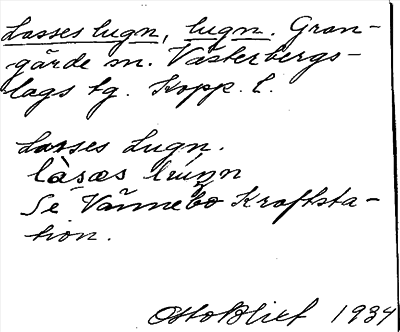 Lasses lugn, lugn. Gran-
gärde sn. Västerbergs-
lags tg. Kopp. l.
Lasses Lugn.
làsæs lúŋn
Se Vännebo Kraftsta-
tion.
Otto Blixt 1934